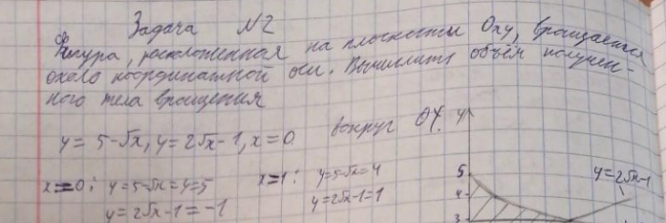 Задача №2
Фигура, расположенная на плоскости Oxy, вращается
около координатной оси. Вычислить объём получен-
ного тела вращения
y = 5-√x, y = 2√x-1, x = 0 вокруг OY.
y
x=0: y=5-√x=y=5
y=2√x-1=-1
x=1: y=5-√x=4
y=2√x-1=1
5
4
3
y=2√x-1